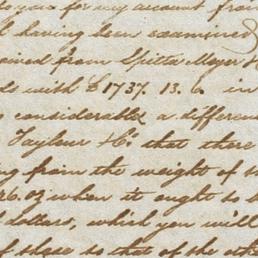 to you for my account from
having been examined
from Spitta Meyer &
with £1737. 13. 6. in
considerable a differe
Tayleur & Co. that there
ing from the weight of
26. oz when it ought to
dollars, which you will
of those to that of the othe